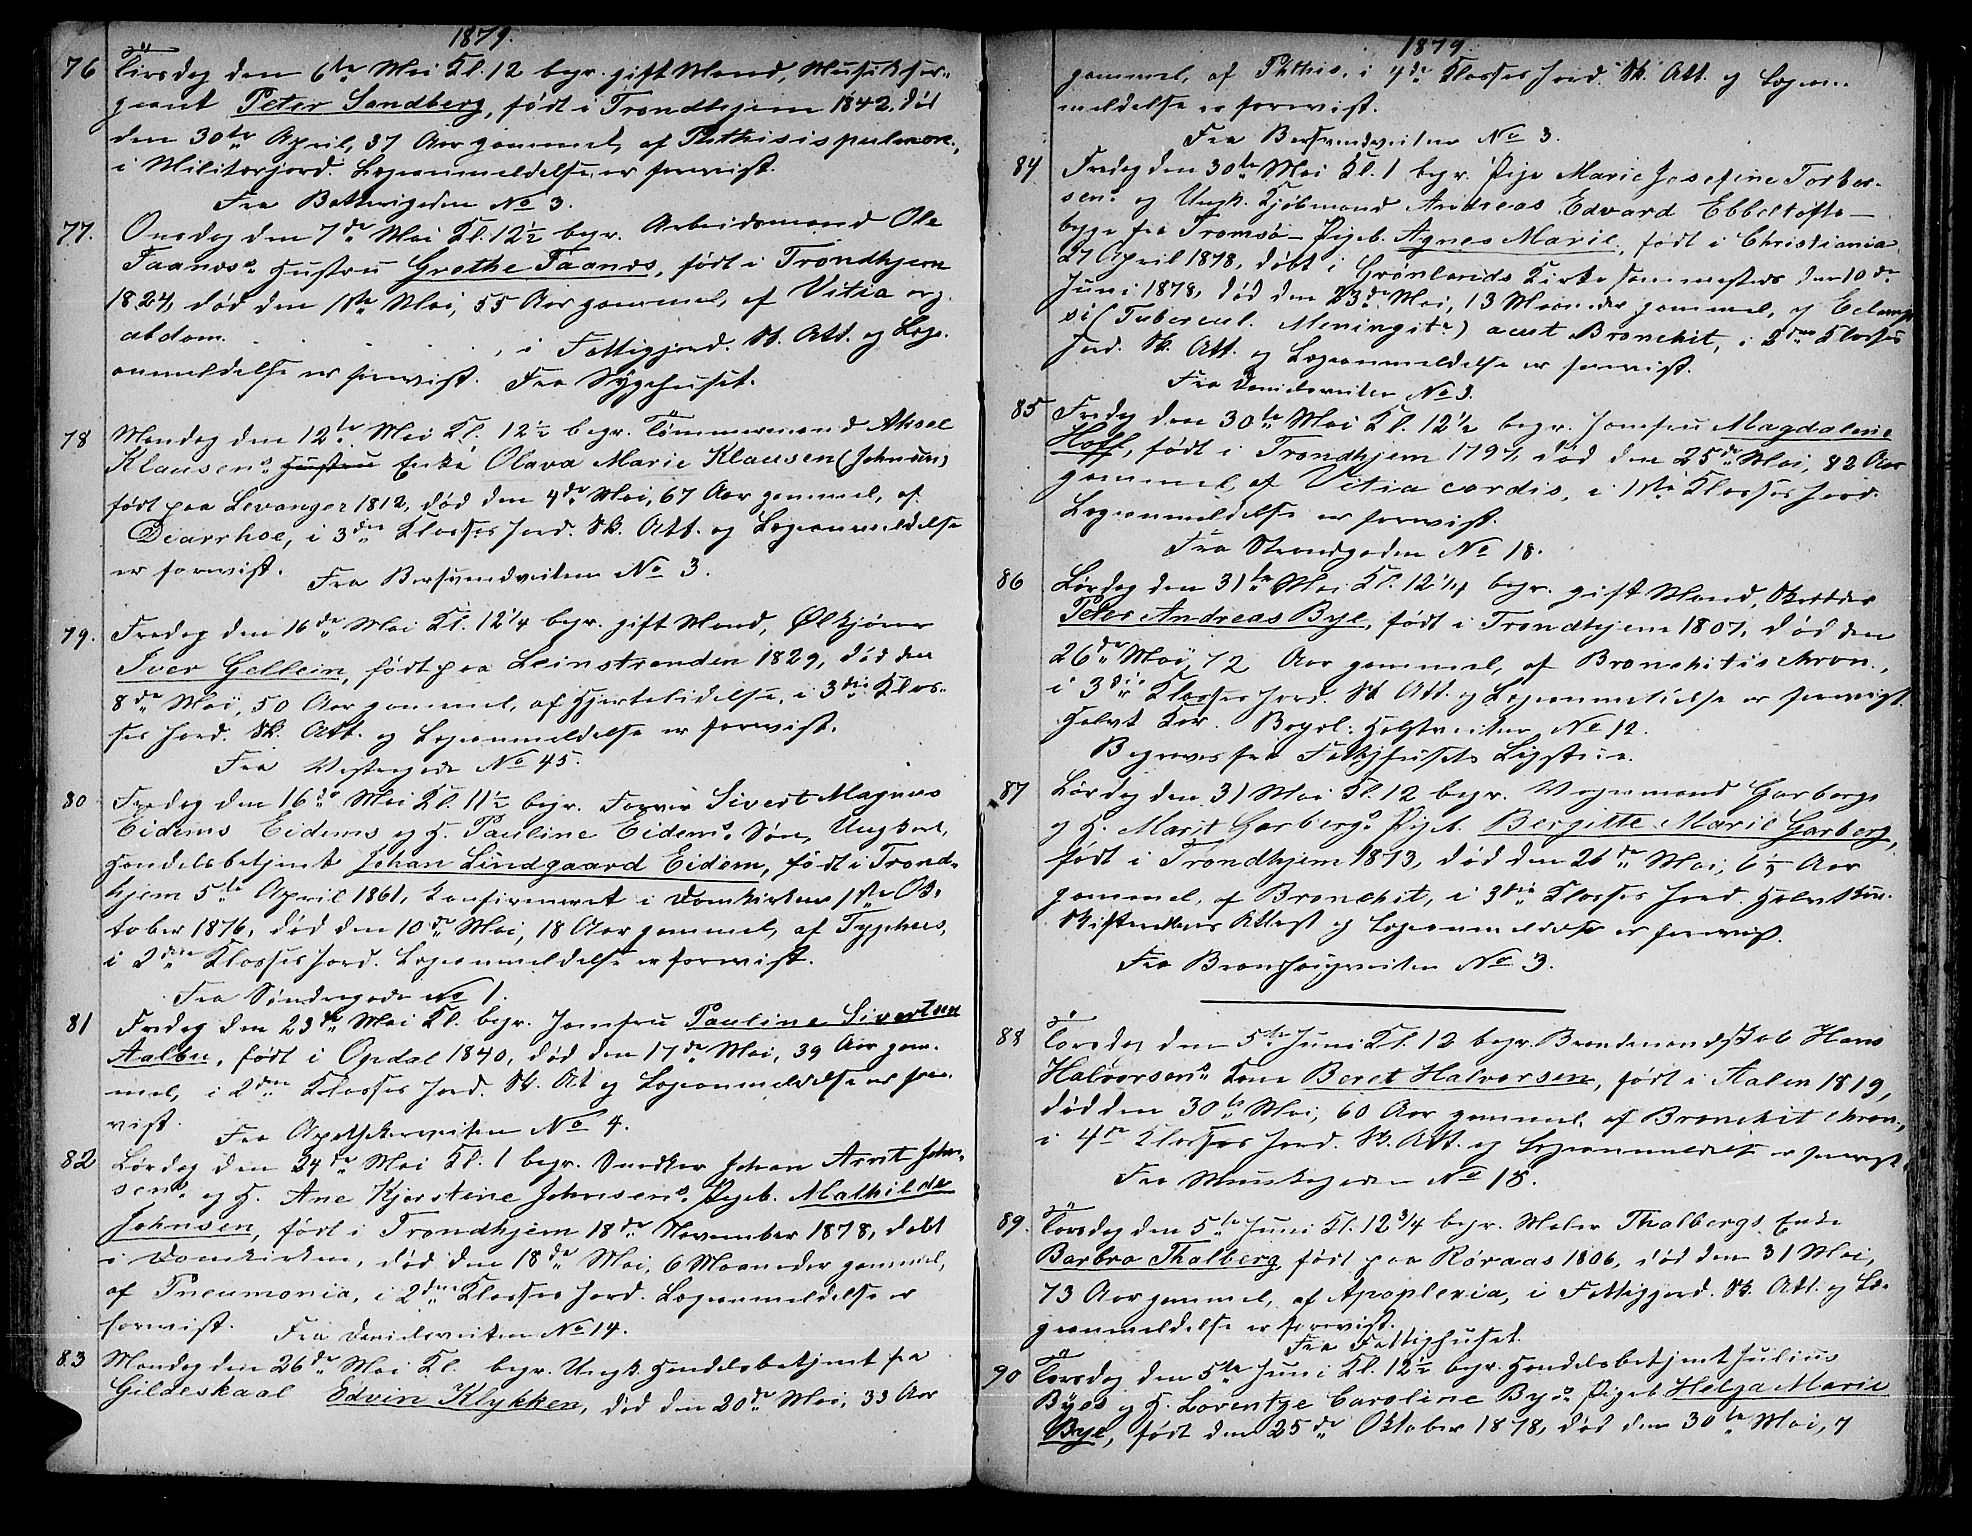 1879.
76 Tirsdag den 6te Mai Kl. 12 begr. gift Mand, Musikser-
geant Peter Sandberg, født i Trondhjem 1842, død
den 30te April, 37 Aar gammel, af Phthisis pulmon.,
i Militærjord. Lægeanmeldelse er forevist.
Fra Bakkegaden No 3.
77. Onsdag den 7de Mai Kl. 12½ begr. Arbeidsmand Ole
Faanøs Hustru Grethe Faanøs, født i Trondhjem
1824, død den 1ste Mai, 55 Aar gammel, af Vitia org.
abdom. , i Fattigjord. Sk. Att. og Læge-
anmeldelse er forevist. Fra Sygehuset.
78 Mandag den 12te Mai Kl. 12½ begr. Tømmermand Aksel
Klausens Hustru Enke Olava Marie Klausen (Johnsen)
født paa Levanger 1812, død den 4de Mai, 67 Aar gammel, af
Diarrhoe, i 3die Klasses Jord. Sk. Att. og Lægeanmeldelse
er forevist. Fra Bersvendveiten No 3.
79. Fredag den 16de Mai Kl. 12¼ begr. gift Mand, Ølkjører
Iver Gellein, født paa Leinstranden 1829, død den
8de Mai, 50 Aar gammel, af Hjertelidelse, i 3die Klas-
ses Jord. Sk. Att. og Lægeanmeldelse er forevist.
Fra Vestergade No 45.
80 Fredag den 16de Mai Kl. 11½ begr. Farver Sivert Magnus
Eidems Eidems og H. Pauline Eidems Søn, Ungkarl,
Handelsbetjent Johan Lindgaard Eidem, født i Trond-
hjem 5te April 1861, konfirmeret i Domkirken 1ste Ok-
tober 1876, død den 10de Mai, 18 Aar gammel, af Typhus,
i 2den Klasses Jord. Lægeanmeldelse er forevist.
Fra Søndregade No 1.
81 Fredag den 23de Mai Kl. begr. Jomfru Pauline Sivertsen
Aalbu, født i Opdal 1840, død den 17de Mai, 39 Aar gam-
mel, i 2den Klasses Jord. Sk. At og Lægeanmeldelse er fore-
vist. Fra Apothekerveiten No 4.
82 Lørdag den 24de Mai Kl. 1 begr. Snedker Johan Arnt John-
sens og H. Ane Kjerstine Johnsens Pigeb. Mathilde
Johnsen, født i Trondhjem 18de November 1878, døbt
i Domkirken, død den 18de Mai, 6 Maaneder gammel,
af Pneumonia, i 2den Klasses Jord. Lægeanmeldelse er
forevist. Fra Danielsveiten No 14.
83 Mandag den 26de Mai Kl. begr. Ungk. Handelsbetjent fra
Gildeskaal Edvin Klykken, død den 20de Mai, 33 Aar
1879.
gammel, af Phthis., i 4de Klasses Jord. Sk. Att. og Lægean-
meldelse er forevist.
Fra Bersvendveiten No 3.
84 Fredag den 30te Mai Kl. 1 begr. Pige Marie Josefine Torber-
sens og Ungk. Kjøbmand Andreas Edvard Ebbeltofts-
bygs fra Tromsø Pigeb. Agnes Marie, født i Christiania
27 April 1878, døbt i Grønlands Kirke sammesteds den 10de
Juni 1878, død den 23de Mai, 13 Maaneder gammel, af Eclamp-
si (Tubercul. Meningit?) acut Bronchit, i 2den Klasses
Jord. Sk. Att. og Lægeanmeldelse er forevist.
Fra Danielsveiten No 3.
85 Fredag den 30te Mai Kl. 12½ begr. Jomfru Magdalene
Hoff, født i Trondhjem 1797, død den 25de Mai, 82 Aar
gammel, af Vitia cordis, i 1ste Klasses Jord.
Lægeanmeldelse er forevist.
Fra Strandgaden No 18.
86 Lørdag den 31te Mai Kl. 12¼ begr. gift Mand, Skrædder
Peter Andreas Bye, født i Trondhjem 1807, død den
26de Mai, 72 Aar gammel, af Bronchitis chron.,
i 3die Klasses Jord. Sk Att. og Lægeanmeldelse er forevist.
Halvt Kor. Bopæl: Holstveiten No 12.
Begraves fra Fattighusets Ligstue.
87 Lørdag den 31 Mai Kl. 12 begr. Vognmand Garbergs
og H. Marit Garbergs Pigeb. Bergitte Marie Garberg,
født i Trondhjem 1873, død den 26de Mai, 6½ Aar
gammel, af Bronchit, i 3die Klasses Jord. Halvt Kor.
Skifterettens Attest og Lægeanmeldelse er forevist.
Fra Brandhaugveiten No 3.
88 Torsdag den 5te Juni Kl. 12 begr. Brandmandskab Hans
Halvorsens Kone Beret Halvorsen, født i Aalen 1819,
død den 30te Mai, 60 Aar gammel, af Bronchit chron.,
i 4de Klasses Jord. Sk. Att. og Lægeanmeldelse er forevist.
Fra Munkegaden No 18.
89. Torsdag den 5te Juni Kl. 12¾ begr. Maler Thalbergs Enke
Barbro Thalberg, født paa Røraas 1806, død den 31 Mai,
73 Aar gammel, af Apoplexia, i Fattigjord. Sk. Att. og Læ-
geanmeldelse er forevist.
Fra Fattighuset.
90 Torsdag den 5te Juni Kl. 12½ begr. Handelsbetjent Julius
Byes og H. Lorentze Caroline Byes Pigeb. Helga Marie
Bye, født den 25de Oktober 1878, død den 30te Mai, 7